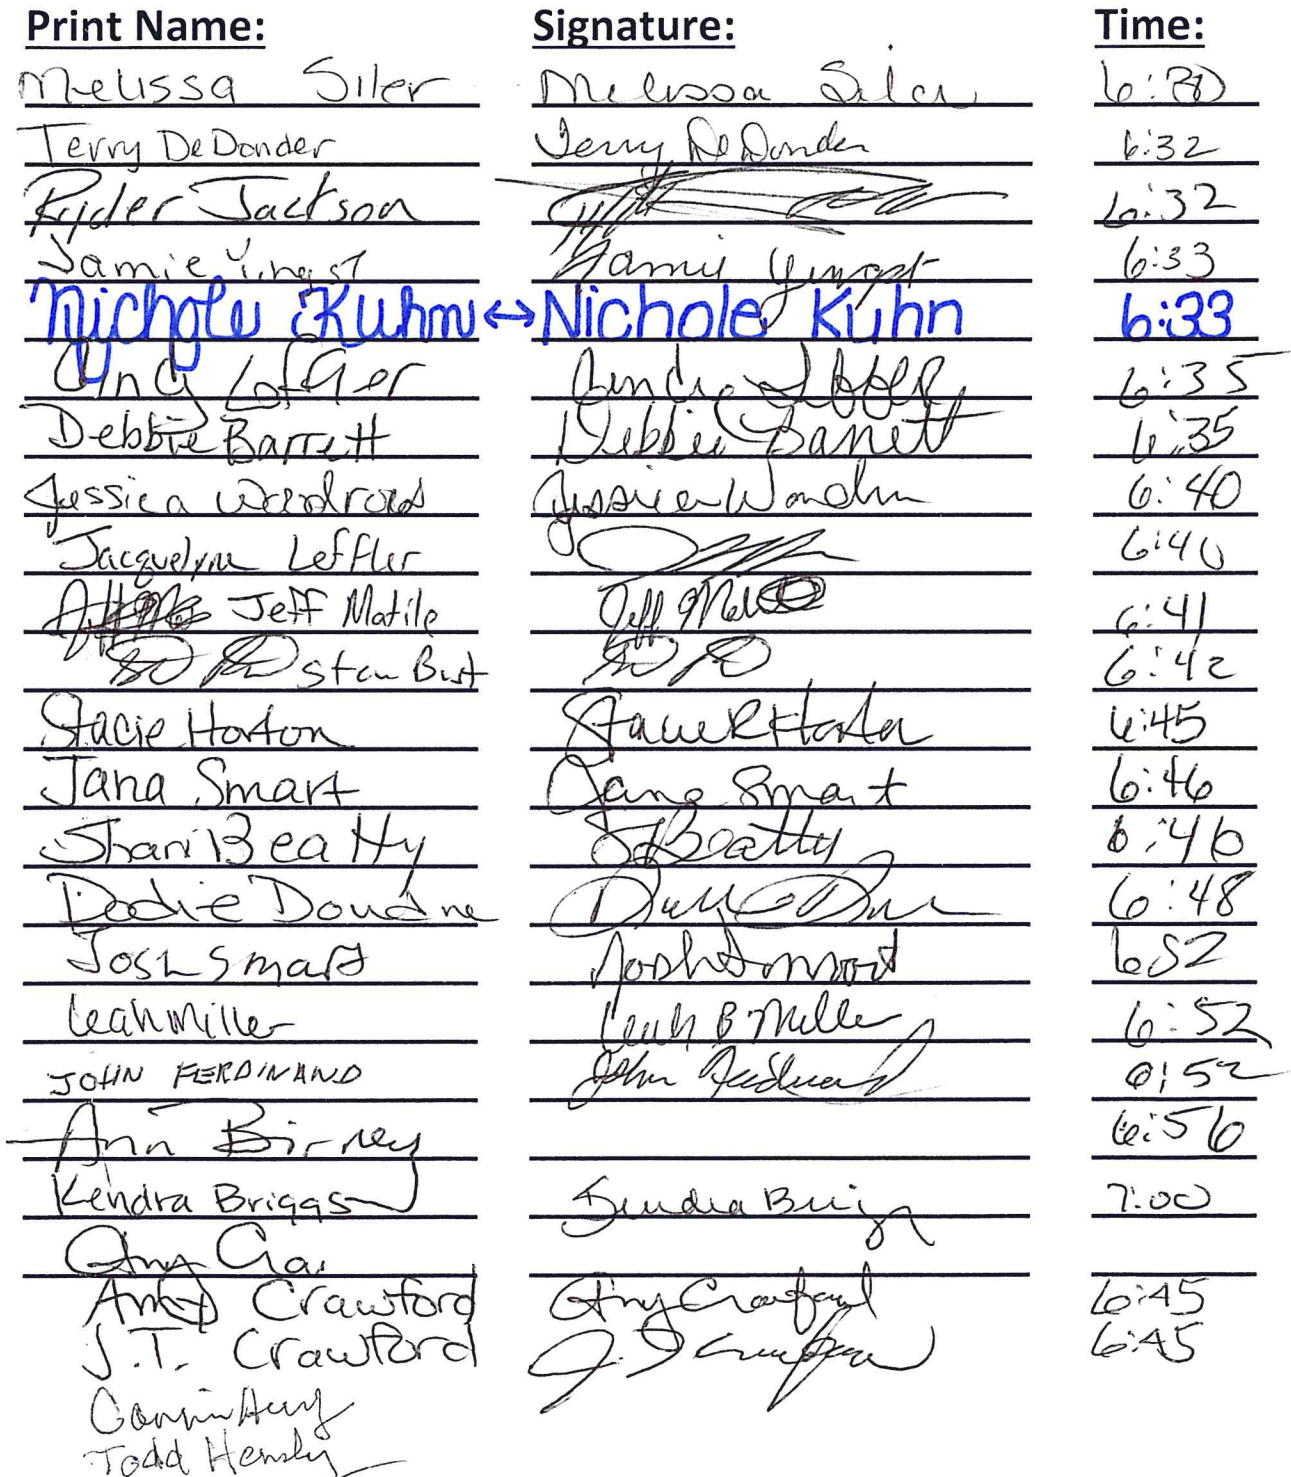 Print Name: Signature: Time:
Melissa Siler Melissa Siler 6:30
Terry DeDonder Terry DeDonder 6:32
Ryder Jackson 6:32
Jamie Yingst Jamie Yingst 6:33
Nichole Kuhn ↔ Nichole Kuhn 6:33
Cindy Loffler 6:35
Debbie Barrett Debbie Barrett 6:35
Jessica Woodrow Jessica 6:40
Jacquelyne Leffler 6:40
Jeff Matile Jeff 6:41
Stan 6:42
Stacie Horton Stacie R Horton 6:45
Jana Smart Jana Smart 6:46
Shari Beatty S Beatty 6:46
Dodie Doudna 6:48
Josh Smart Josh Smart 6:52
Leah Miller Leah B Miller 6:52
JOHN FERDINAND John Ferdinand 6:52
Ann Birney 6:56
Kendra Briggs Kendra Briggs 7:00
Amy
Amy Crawford Amy Crawford 6:45
J.T. Crawford J.T. Crawford 6:45
Todd Hensley